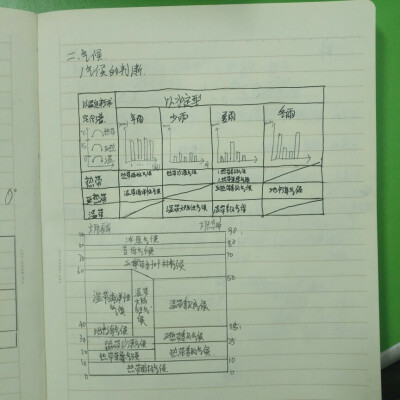 二.气候
1.气候的判断
以水定型
年雨
少雨
夏雨
冬雨
热带
热带雨林气候
热带沙漠气候
热带草原气候
热带季风气候
亚热带
温带海洋性气候
亚热带季风气候
地中海气候
温带
温带大陆性气候
温带季风气候
大陆西岸
大陆东岸
冰原气候
苔原气候
亚寒带针叶林气候
温带海洋性气候
温带大陆性气候
温带季风气候
地中海气候
亚热带季风气候
热带沙漠气候
热带季风气候
热带草原气候
热带雨林气候
0°